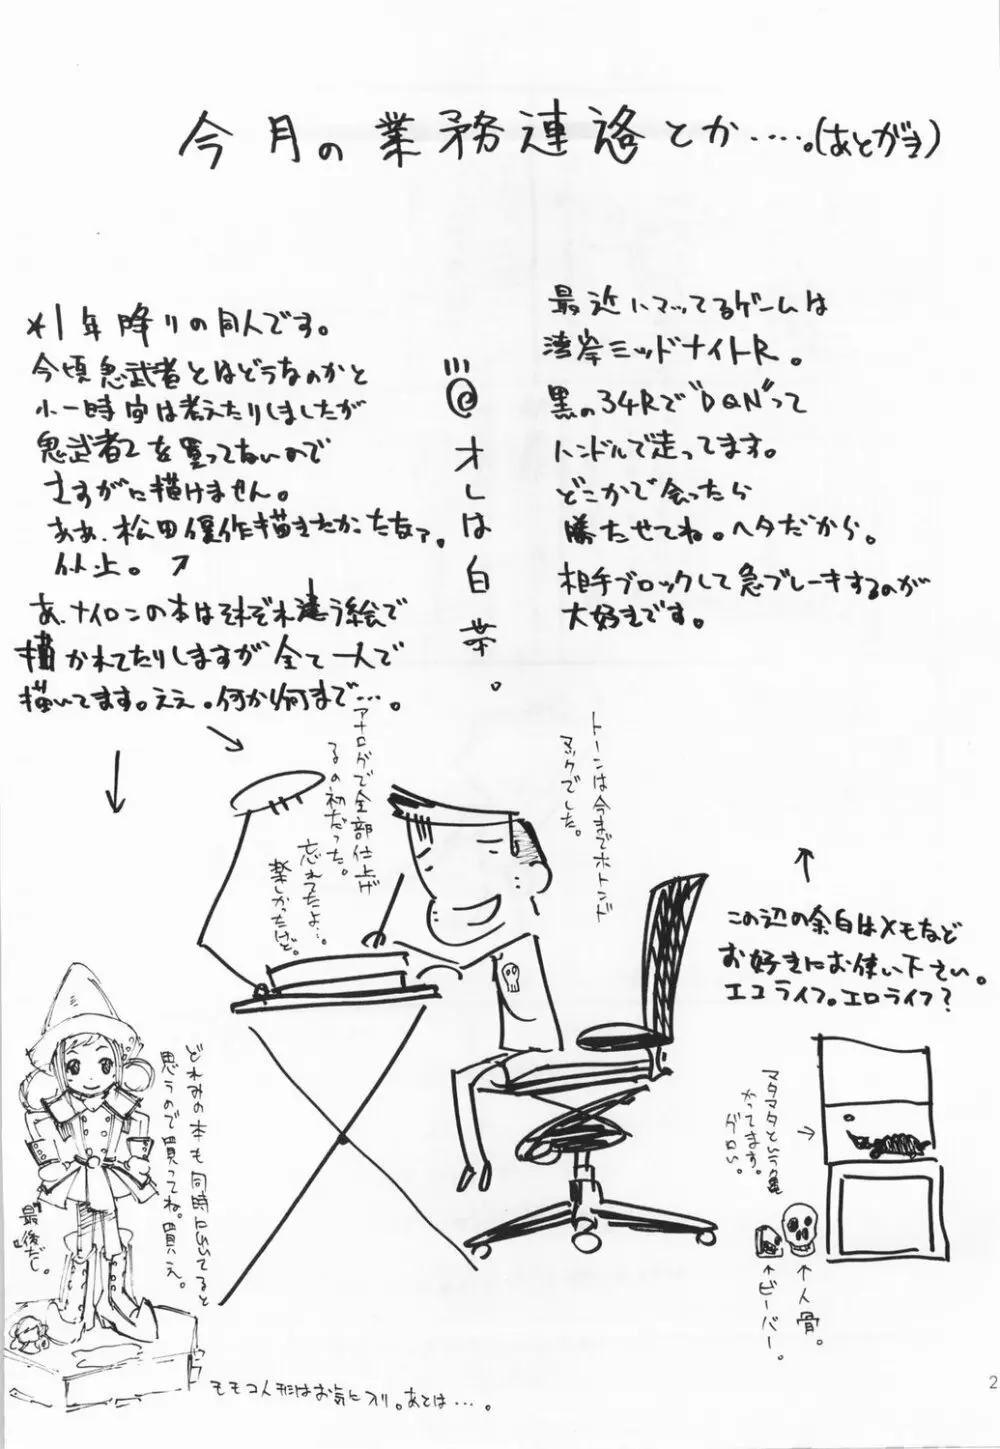 今月の業務連絡とか‥‥。(あとがき)
*1年降りの同人です。
今頃鬼武者とはどうなのかと
小一時間は考えたりしましたが
鬼武者2を買ってないので
さすがに描けません。
ああ、松田優作描きたかったなァ。
以上。
あ、ナイロンの本はそれぞれ違う絵で
描かれてたりしますが全て一人で
描いてます。ええ。何から何まで…。
@オレは白
茶。
最近ハマッてるゲームは
湾岸ミッドナイトR。
黒の34Rで"DQN"って
ハンドルで走ってます。
どこかで会ったら
勝たせてね。ヘタだから。
相手ブロックして急ブレーキするのが
大好きです。
トーンは今までホトンド
マックでした。
アナログで全部仕上げ
るの初だった。
忘れてたよ…。
楽しかったけど。
この辺の余白はメモなど
お好きにお使い下さい。
エコライフ。エロライフ?
マタマタという亀
かってます。
グロい。
↑人骨。
↑ビーバー。
どれみの本も同時に出てると
思うので買ってね。買え。
最後だし。
モモコ人形はお気に入り。あとは…。
2